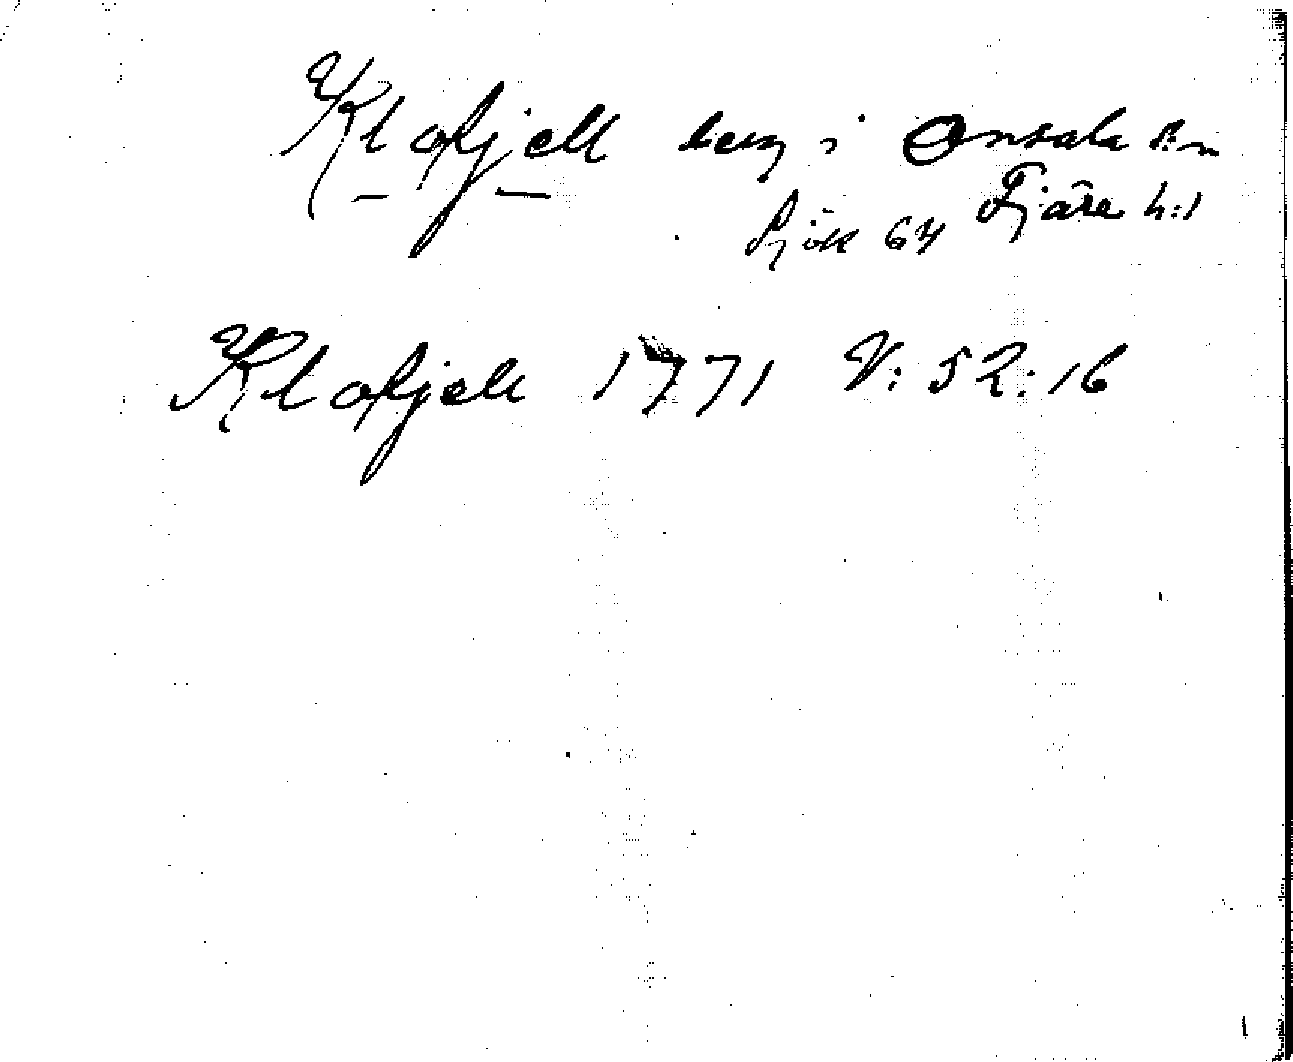 Klofjell berg i Onsala sn
Fjäre h:d
64
Klofjell 1771 V: 52:16